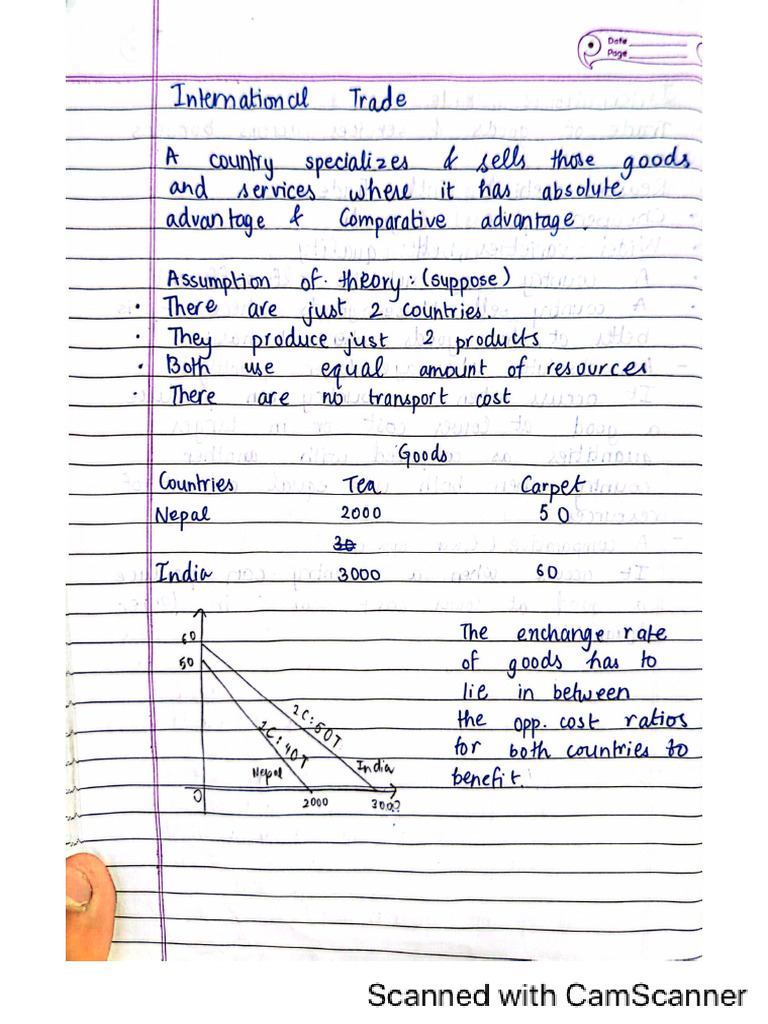 Date
Page
International Trade
A country specializes & sells those goods
and services where it has absolute
advantage & Comparative advantage.
Assumption of theory: (suppose)
• There are just 2 countries.
• They produce just 2 products
• Both use equal amount of resources
• There are no transport cost
Goods
Countries Tea Carpet
Nepal 2000 50
30
India 3000 60
60
50
1C:50T
1C:40T
Nepal
India
0
2000
3000
The enchange rate
of goods has to
lie in between
the opp. cost ratios
for both countries to
benefit.
Scanned with CamScanner